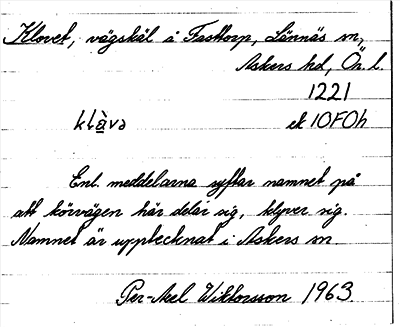 Klovet, vägskäl å Fasttorp, Lännäs sn,
Askers hd, Ör. l.
1221
klà̱və ek 10F0h
Enl. meddelarna syftar namnet på
att körvägen här delar sig, klyver sig.
Namnet är upptecknat i Askers sn.
Per-Axel Wiktorsson 1963.